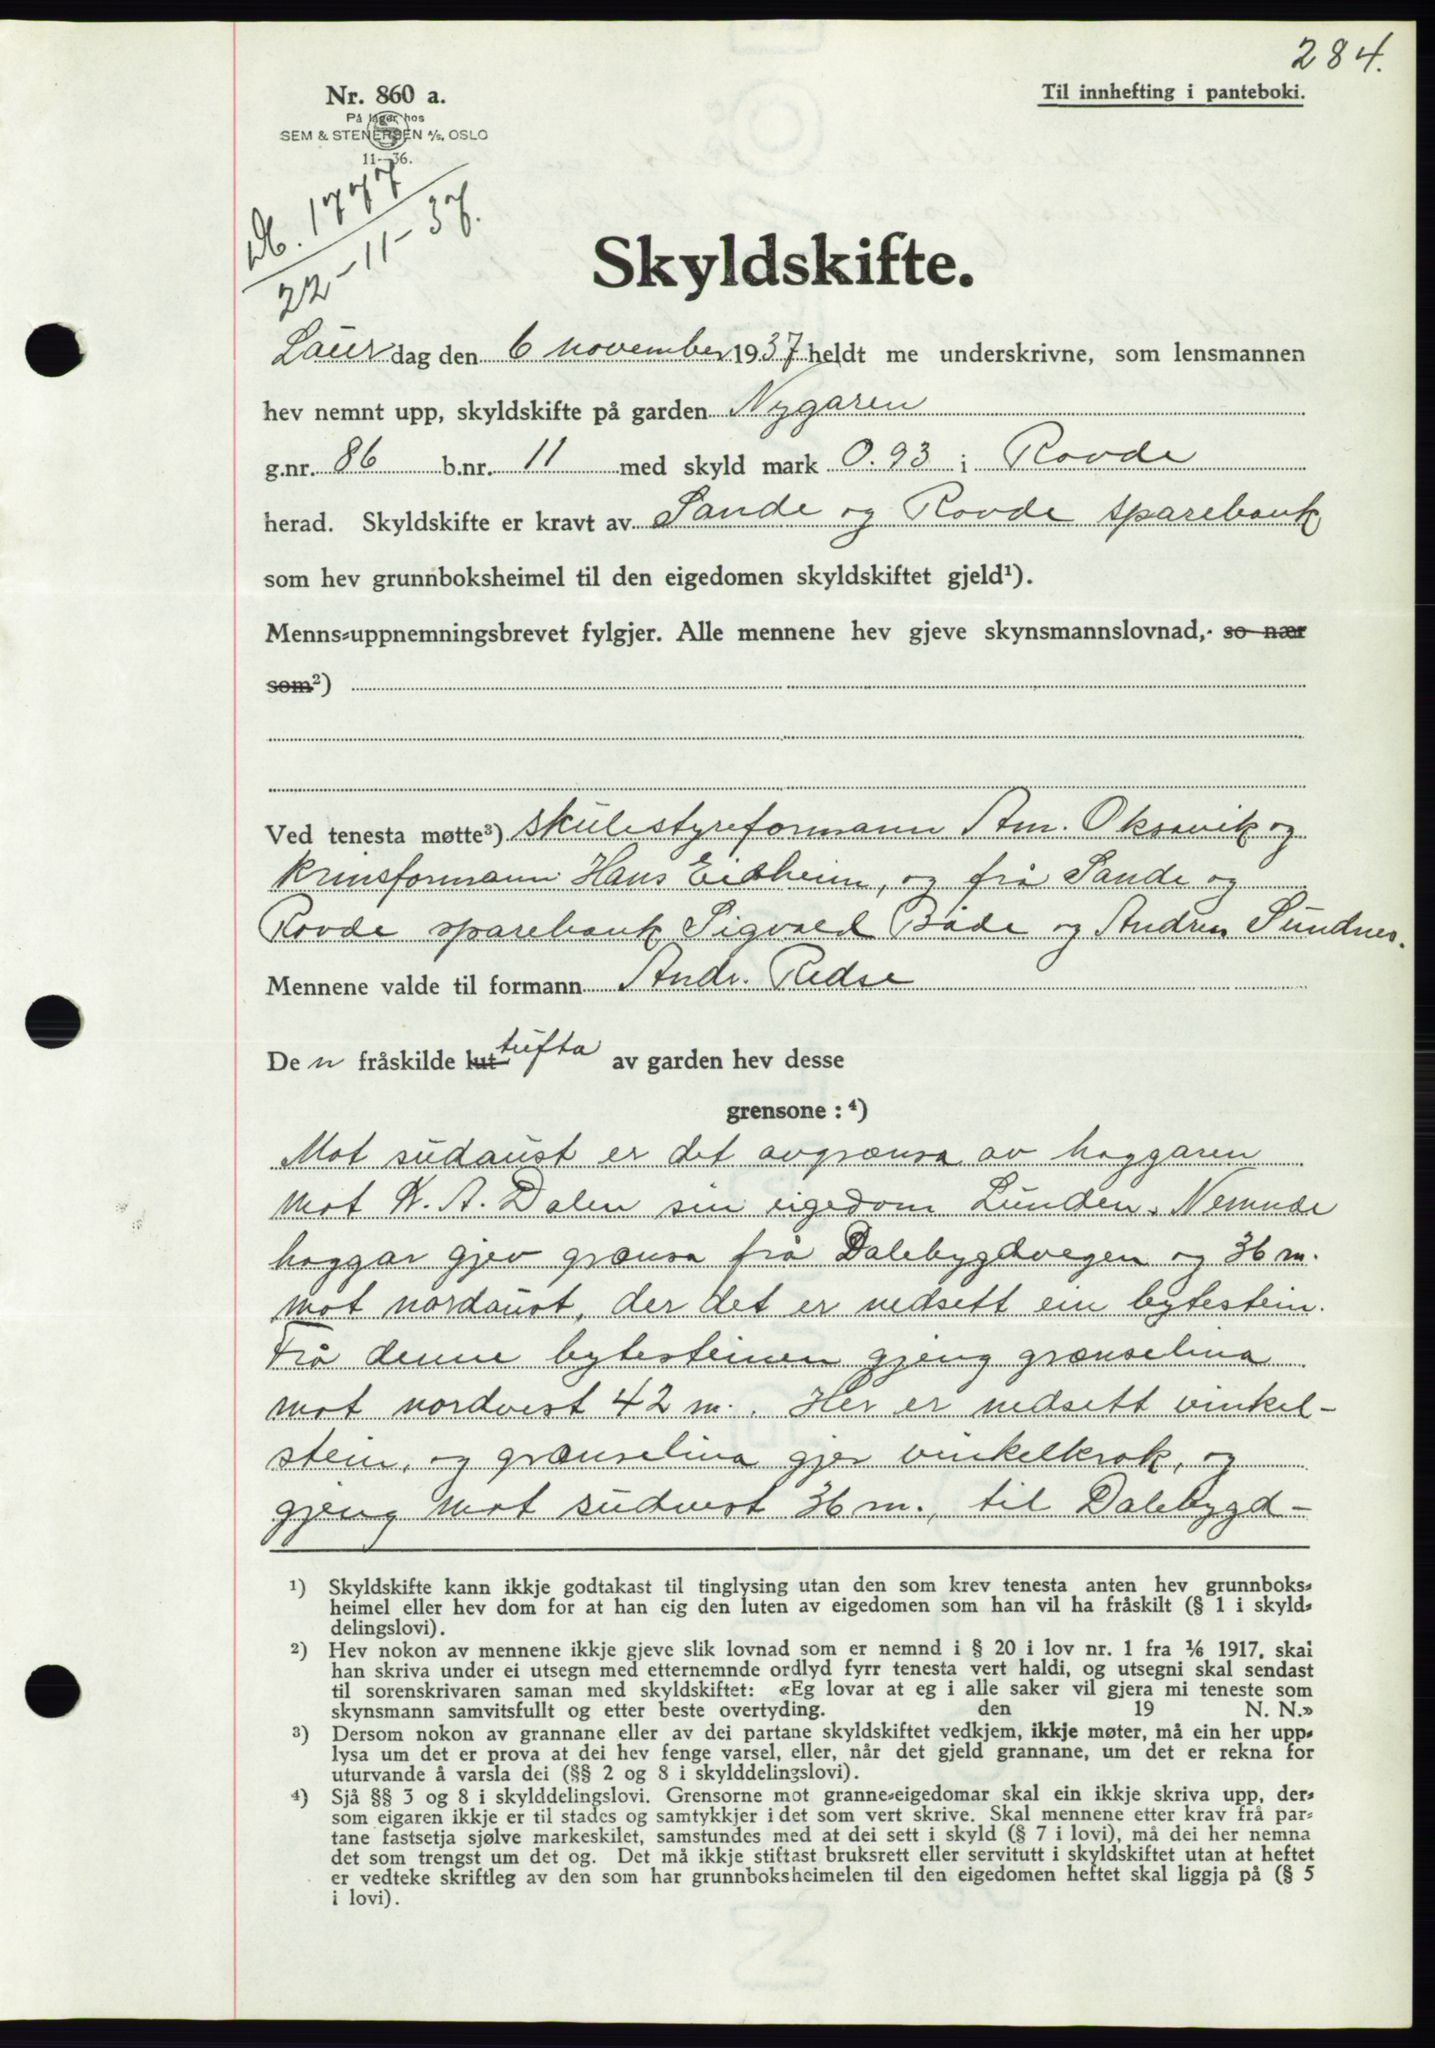 284.
Nr. 860 a.
Til innhefting i panteboki.
På lager hos
SEM & STENERSEN A/S, OSLO
11—36.
Db. 1777
22-11-37.
Skyldskifte.
Laurdag den 6 november 1937 heldt me underskrivne, som lensmannen
hev nemnt upp, skyldskifte på garden Nygaren
g.nr. 86 b.nr. 11 med skyld mark 0.93 i Rovde
herad. Skyldskifte er kravt av Sande og Rovde sparebank
som hev grunnboksheimel til den eigedomen skyldskiftet gjeld¹).
Menns-uppnemningsbrevet fylgjer. Alle mennene hev gjeve skynsmannslovnad, so nær
som²)
Ved tenesta møtte³) skulestyreformann Am. Oksavik og
krinsformann Hans Eidheim, og frå Sande og
Rovde sparebank Sigvald Både og Andreas Sundnes.
Mennene valde til formann Andr. Redse
De n fråskilde lut tufta av garden hev desse
grensone : ⁴)
Mot sudaust er det avgrænsa av haggaren
mot K. A. Dalen sin eigedom Lunden. Nemnde
haggar gjev grænsa frå Dalebygdvegen og 36 m.
mot nordaust, der det er nedsett ein bytestein.
Frå denne bytesteinen gjeng grænselina
mot nordvest 42 m.. Her er nedsett vinkel-
stein, og grænselina gjer vinkelkrok, og
gjeng mot sudvest 36 m., til Dalebygd-
¹) Skyldskifte kann ikkje godtakast til tinglysing utan den som krev tenesta anten hev grunnboks-
heimel eller hev dom for at han eig den luten av eigedomen som han vil ha fråskilt (§ 1 i skyld-
delingslovi).
²) Hev nokon av mennene ikkje gjeve slik lovnad som er nemnd i § 20 i lov nr. 1 fra 1/6 1917, skal
han skriva under ei utsegn med etternemnde ordlyd fyrr tenesta vert haldi, og utsegni skal sendast
til sorenskrivaren saman med skyldskiftet: «Eg lovar at eg i alle saker vil gjera mi teneste som
skynsmann samvitsfullt og etter beste overtyding. den 19 N. N.»
³) Dersom nokon av grannane eller av dei partane skyldskiftet vedkjem, ikkje møter, må ein her upp-
lysa um det er prova at dei hev fenge varsel, eller, når det gjeld grannane, um det er rekna for
uturvande å varsla dei (§§ 2 og 8 i skylddelingslovi).
⁴) Sjå §§ 3 og 8 i skylddelingslovi. Grensorne mot granne-eigedomar skal ein ikkje skriva upp, der-
som eigaren ikkje er til stades og samtykkjer i det som vert skrive. Skal mennene etter krav frå par-
tane fastsetja sjølve markeskilet, samstundes med at dei sett i skyld (§ 7 i lovi), må dei her nemna
det som trengst um det og. Det må ikkje stiftast bruksrett eller servitutt i skyldskiftet utan at heftet
er vedteke skriftleg av den som har grunnboksheimelen til den eigedomen heftet skal liggja på (§ 5
i lovi).